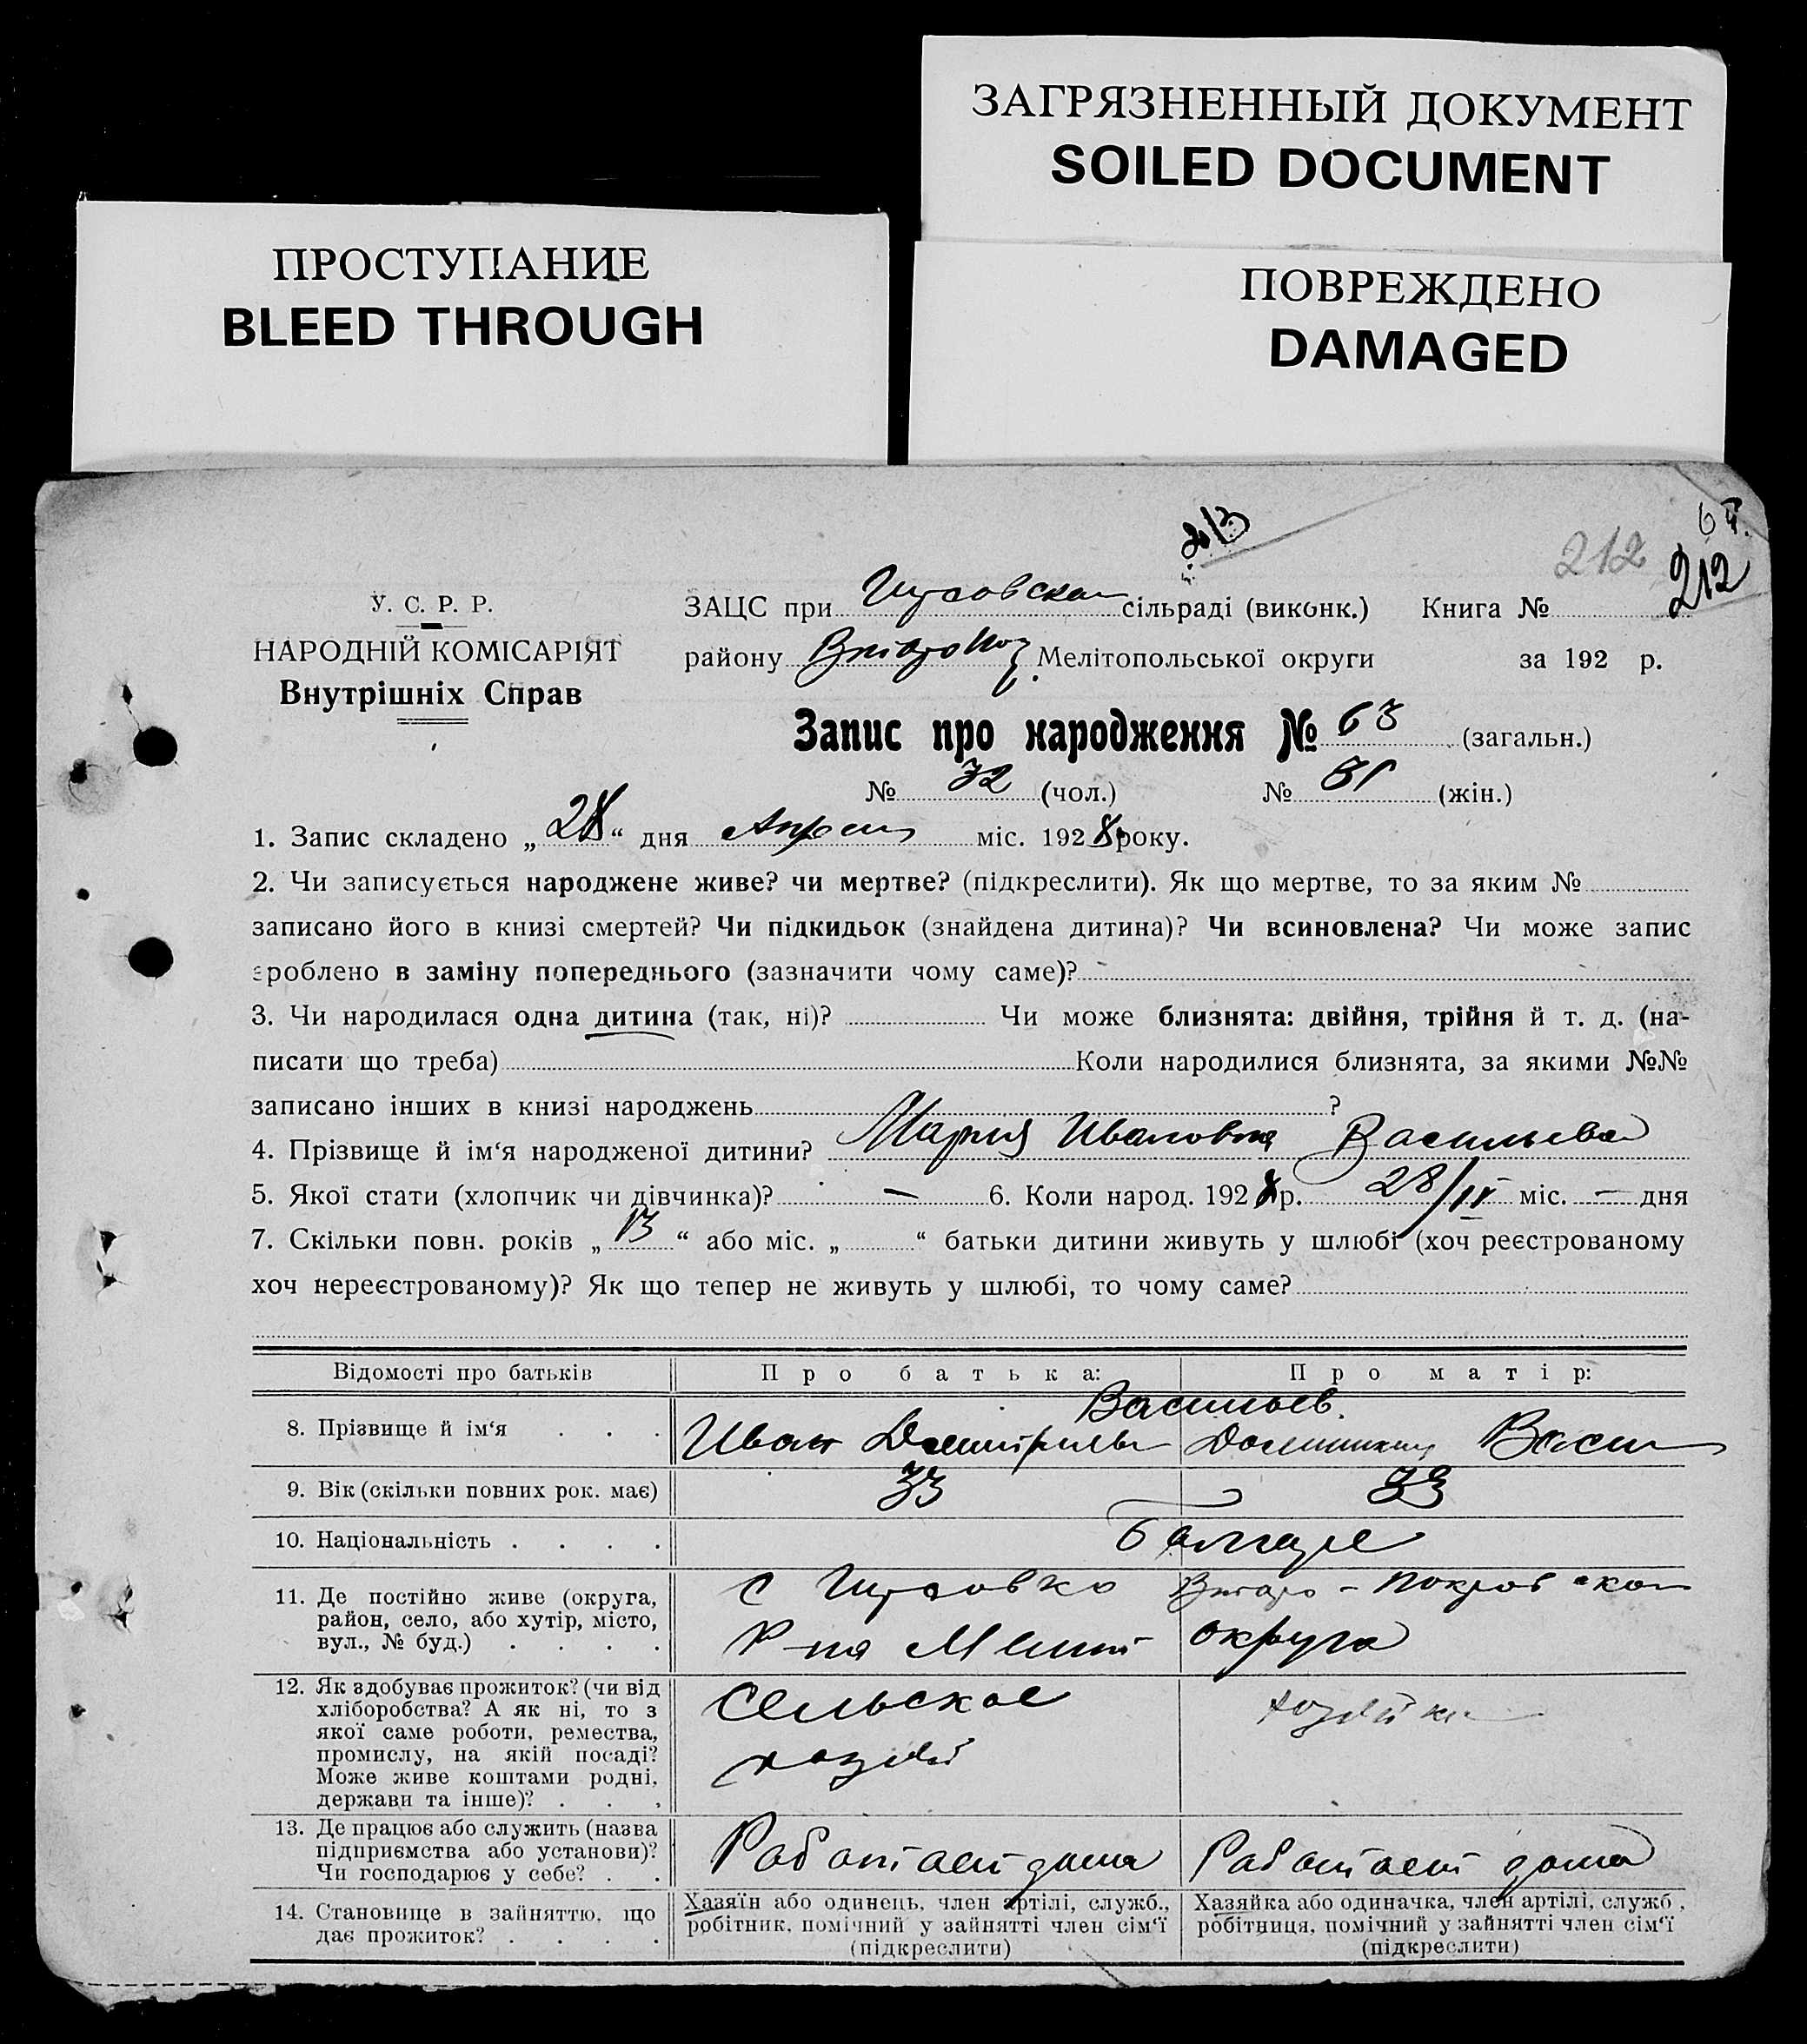 ЗАГРЯЗНЕННЫЙ ДОКУМЕНТ
SOILED DOCUMENT
ПРОСТУПАНИЕ
BLEED THROUGH
ПОВРЕЖДЕНО
DAMAGED
213
212
212
У. С. Р. Р.
НАРОДНІЙ КОМІСАРІЯТ
Внутрішніх Справ
ЗАЦС при сільраді (виконк.) Книга №
району Мелітопольської округи за 192 р.
Запис про народження № 63 (загальн.)
№ 32 (чол.) № 31 (жін.)
1. Запис складено „ 28 “ дня міс. 1928 року.
2. Чи записується народжене живе? чи мертве? (підкреслити). Як що мертве, то за яким №
записано його в книзі смертей? Чи підкидьок (знайдена дитина)? Чи всиновлена? Чи може запис
зроблено в заміну попереднього (зазначити чому саме)?
3. Чи народилася одна дитина (так, ні)? Чи може близнята: двійня, трійня й т. д. (на-
писати що треба) Коли народилися близнята, за якими №№
записано інших в книзі народжень ?
4. Прізвище й ім‘я народженої дитини? Мария Ивановна Васильева
5. Якої стати (хлопчик чи дівчинка)? — 6. Коли народ. 1928 р. 28/IV міс. — дня
7. Скільки повн. років „ 13 “ або міс. „ “ батьки дитини живуть у шлюбі (хоч реєстрованому
хоч нереєстрованому)? Як що тепер не живуть у шлюбі, то чому саме?
Відомості про батьків Про батька: Про матір:
Васильев.
8. Прізвище й ім‘я . . . Иван
9. Вік (скільки повних рок. має) 33 33
10. Національність . . . . Болгаре
11. Де постійно живе (округа,
район, село, або хутір, місто,
вул., № буд.) . . . .
с
Р-на Мелит округа
12. Як здобуває прожиток? (чи від
хліборобства? А як ні, то з
якої саме роботи, ремества,
промислу, на якій посаді?
Може живе коштами родні,
держави та інше)? . . .
Сельское
хозяйка
13. Де працює або служить (назва
підприємства або установи)?
Чи господарює у себе? . .
Работает дома Работает дома
14. Становище в зайняттю, що
дає прожиток? . . . .
Хазяїн або одинець, член артілі, служб.,
робітник, помічний у зайнятті член сім‘ї
(підкреслити)
Хазяйка або одиначка, член артілі, служб.,
робітниця, помічний у зайнятті член сім‘ї
(підкреслити)